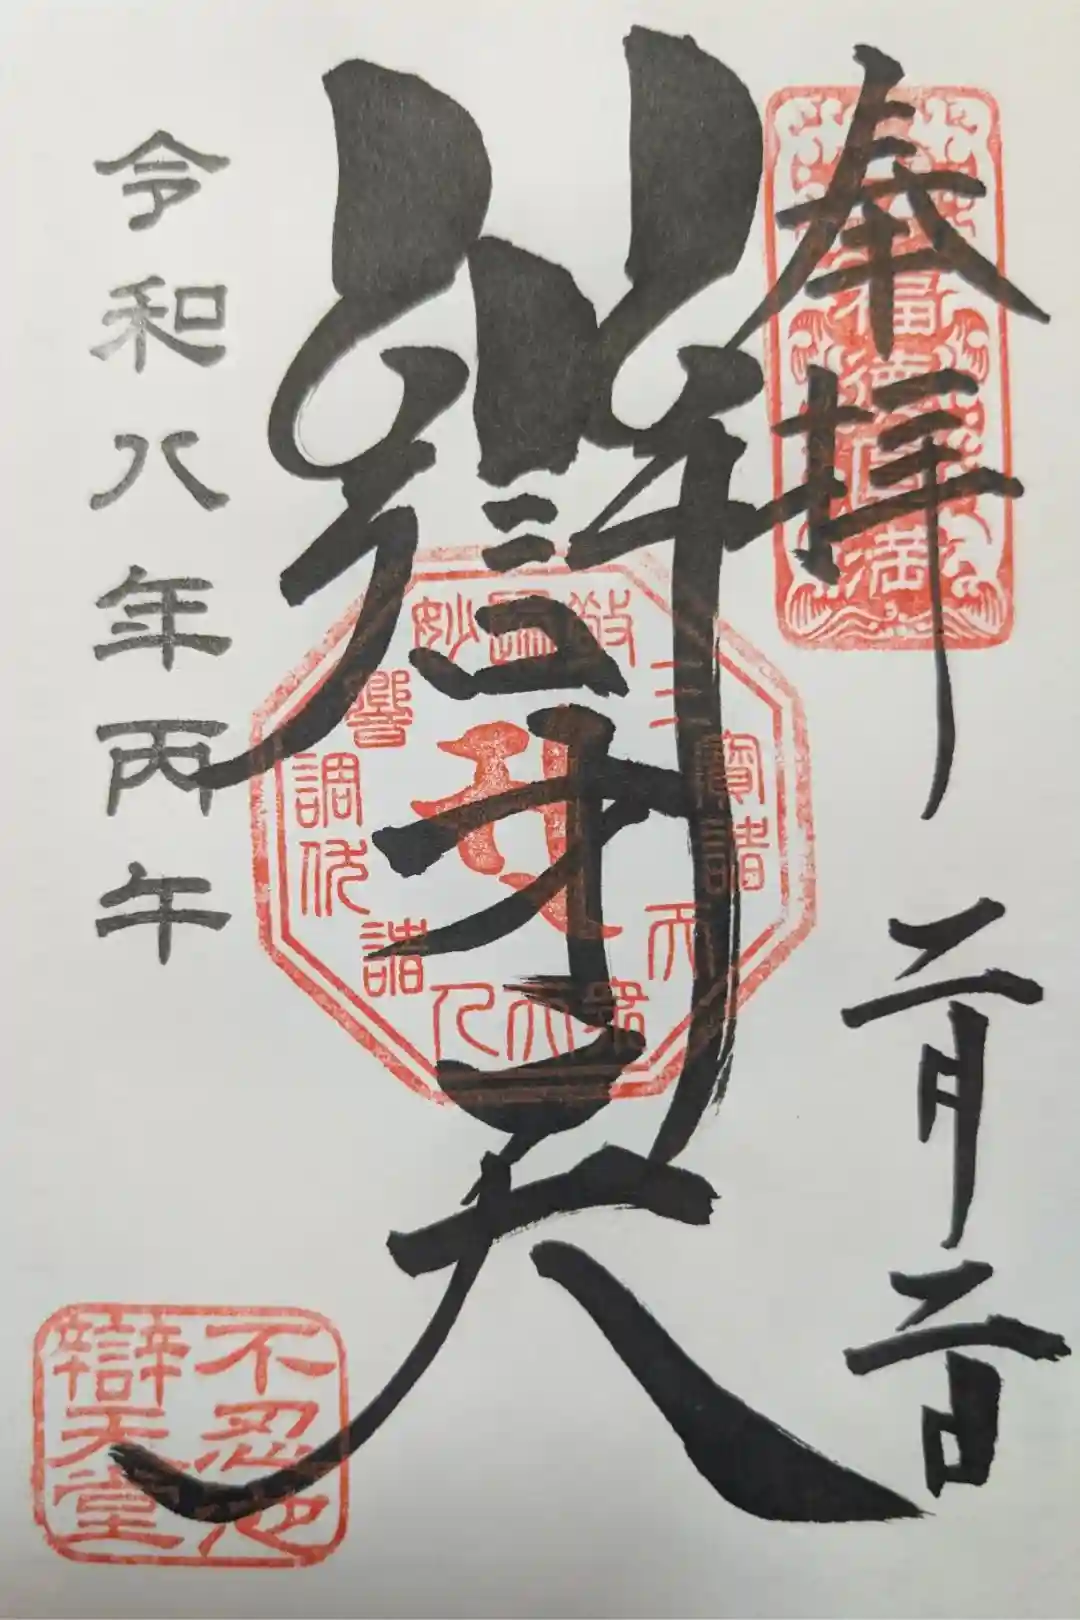 奉拝
二月二日
福徳円満
辯才天
令和八年丙午
不忍池
辯天堂